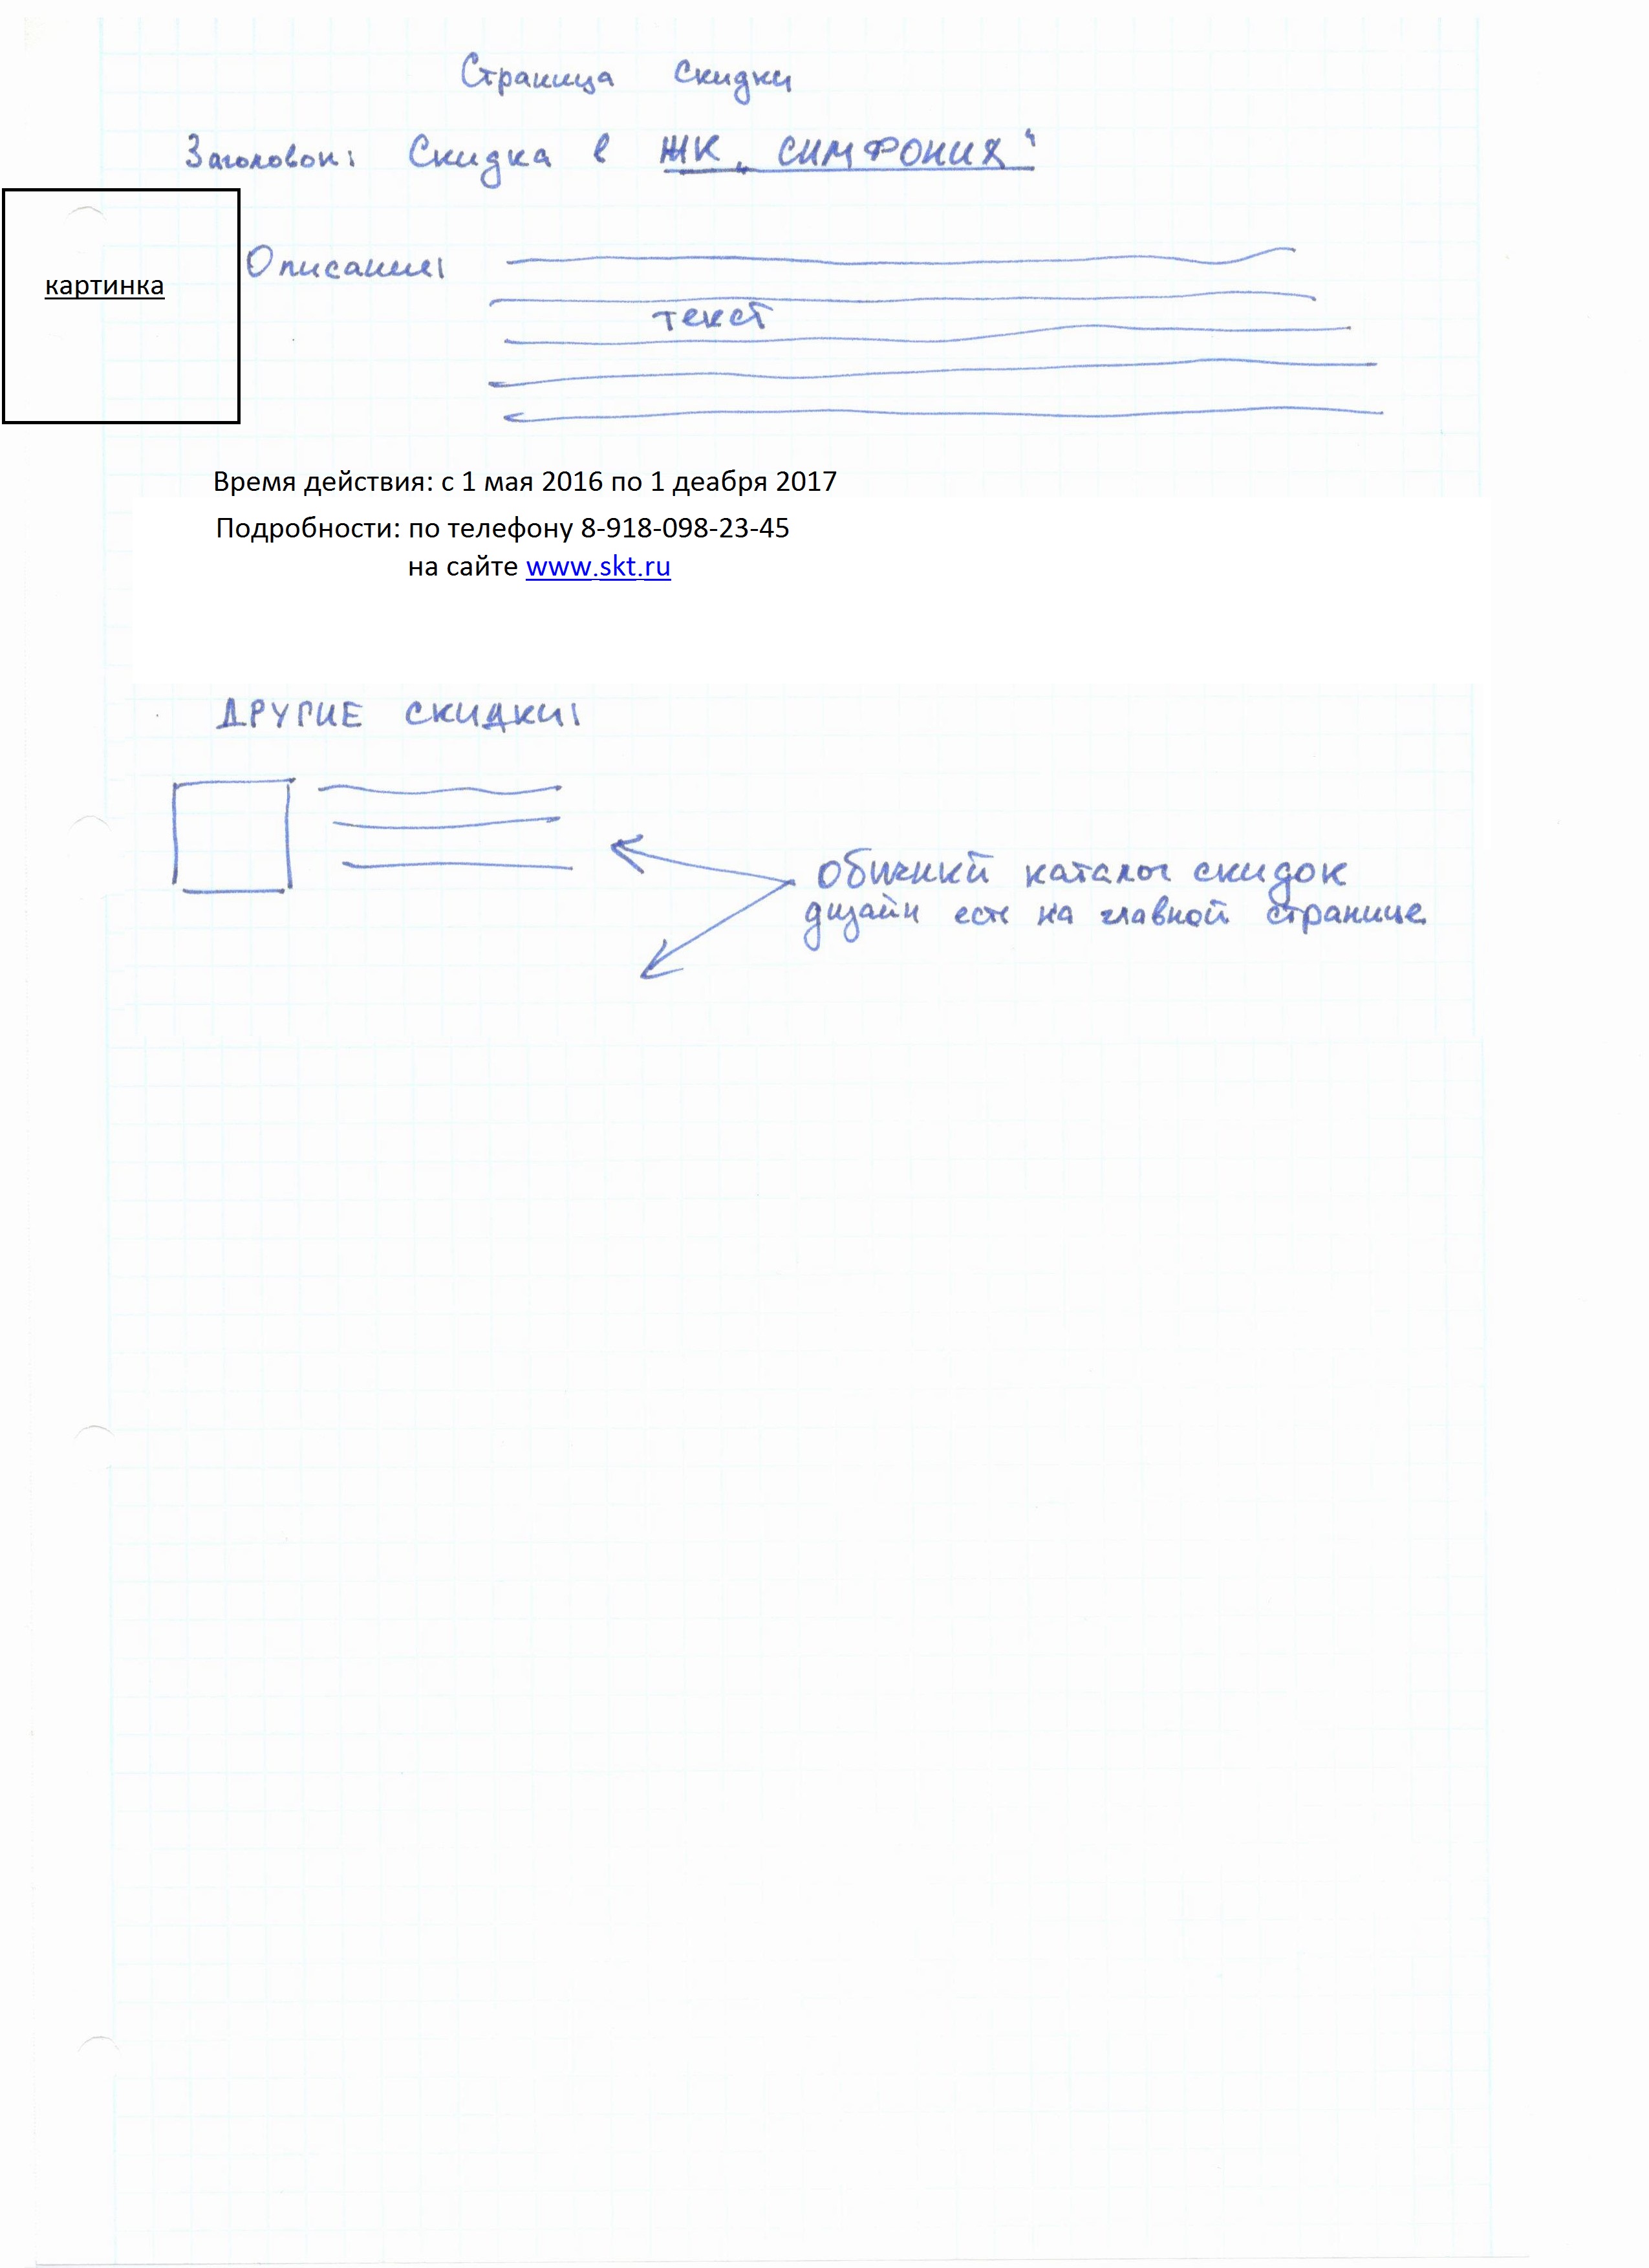 Страница Скидки
Заголовок: Скидка в ЖК „СИМФОНИЯ"
картинка
Описание:
текст
Время действия: с 1 мая 2016 по 1 деабря 2017
Подробности: по телефону 8-918-098-23-45
на сайте www.skt.ru
ДРУГИЕ СКИДКИ:
обычный каталог скидок
дизайн есть на главной странице